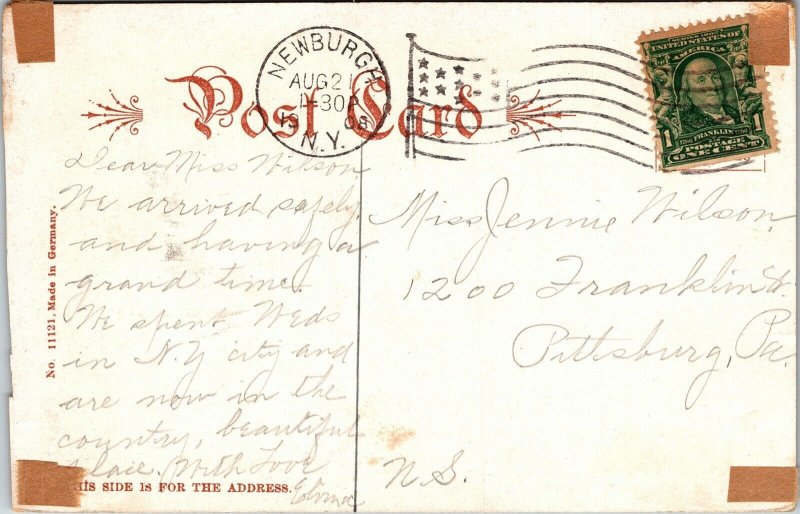 Post Card
NEWBURGH
AUG 21
1-30P
1908
N.Y.
SERIES 1902
UNITED STATES OF
AMERICA
1
FRANKLIN
POSTAGE
ONE CENT
Dear Miss Wilson
We arrived safely
and having a
grand time.
We spent Weds
in N.Y city and
are now in the
country, beautiful
place. With Love
Miss Jennie Wilson,
1200 Franklin St.
Pittsburg, Pa.
N.S.
No. 11121. Made in Germany.
THIS SIDE IS FOR THE ADDRESS.